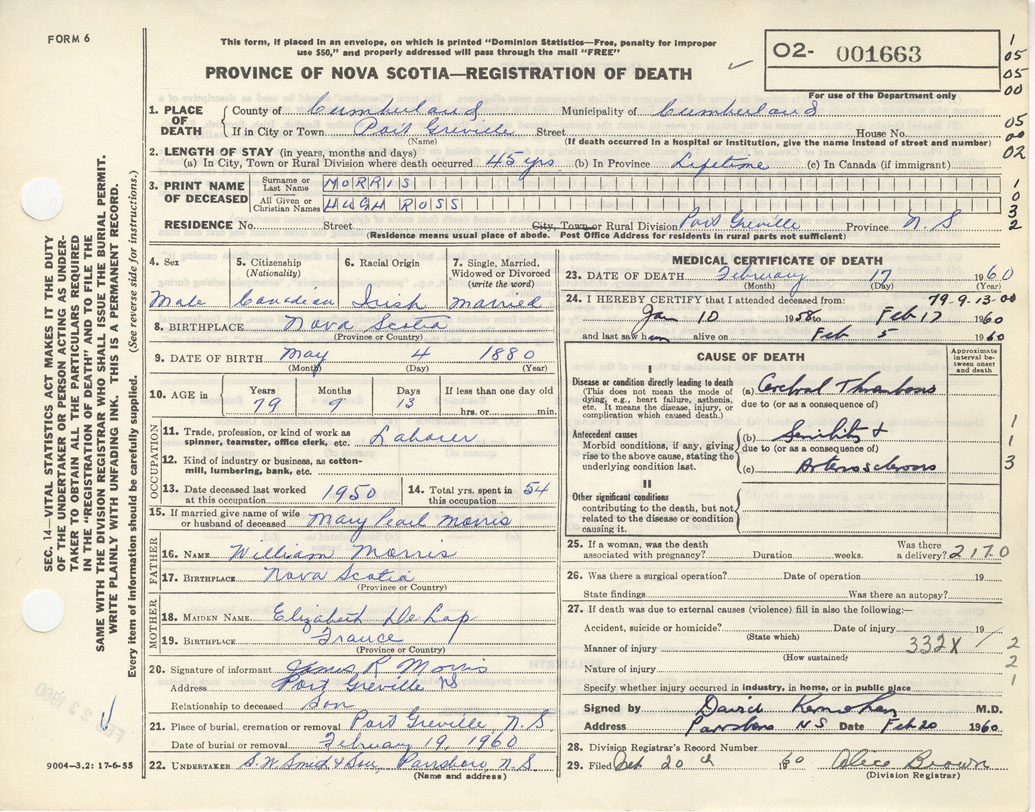 FORM 6
This form, if placed in an envelope, on which is printed "Dominion Statistics—Free, penalty for improper
use $50," and properly addressed will pass through the mail "FREE"
PROVINCE OF NOVA SCOTIA—REGISTRATION OF DEATH
O2- 001663
For use of the Department only
1
05
05
00
05
00
02
1
0
3
2
SEC. 14—VITAL STATISTICS ACT MAKES IT THE DUTY
OF THE UNDERTAKER OR PERSON ACTING AS UNDER-
TAKER TO OBTAIN ALL THE PARTICULARS REQUIRED
IN THE "REGISTRATION OF DEATH" AND TO FILE THE
SAME WITH THE DIVISION REGISTRAR WHO SHALL ISSUE THE BURIAL PERMIT.
WRITE PLAINLY WITH UNFADING INK. THIS IS A PERMANENT RECORD.
Every item of information should be carefully supplied. (See reverse side for instructions.)
1. PLACE OF DEATH
County of Cumberland Municipality of Cumberland
If in City or Town Port Greville Street House No.
(Name) (If death occurred in a hospital or institution, give the name instead of street and number)
2. LENGTH OF STAY (in years, months and days)
(a) In City, Town or Rural Division where death occurred 45 yrs (b) In Province Lifetime (c) In Canada (if immigrant)
3. PRINT NAME OF DECEASED
Surname or Last Name MORRIS
All Given or Christian Names HUGH ROSS
RESIDENCE No. Street City, Town or Rural Division Port Greville Province N.S
(Residence means usual place of abode. Post Office Address for residents in rural parts not sufficient)
4. Sex Male
5. Citizenship (Nationality) Canadian
6. Racial Origin Irish
7. Single, Married, Widowed or Divorced (write the word) married
8. BIRTHPLACE Nova Scotia
(Province or Country)
9. DATE OF BIRTH May 4 1880
(Month) (Day) (Year)
10. AGE Years 79 Months 9 Days 13 If less than one day old
hrs. or min.
OCCUPATION
11. Trade, profession, or kind of work as
spinner, teamster, office clerk, etc. Laborer
12. Kind of industry or business, as cotton-
mill, lumbering, bank, etc.
13. Date deceased last worked
at this occupation 1950
14. Total yrs. spent in
this occupation 54
15. If married give name of wife
or husband of deceased Mary Pearl Morris
FATHER
16. NAME William Morris
17. BIRTHPLACE Nova Scotia
(Province or Country)
MOTHER
18. MAIDEN NAME Elizabeth De Lap
19. BIRTHPLACE France
(Province or Country)
20. Signature of informant James R Morris
Address Port Greville NS
Relationship to deceased Son
21. Place of burial, cremation or removal Port Greville, N.S
Date of burial or removal February 19, 1960
22. UNDERTAKER S.W. Smith & Son, Parrsboro, N.S.
(Name and address)
9004—3.2: 17-6-55
MEDICAL CERTIFICATE OF DEATH
23. DATE OF DEATH February 17 1960
(Month) (Day) (Year)
24. I HEREBY CERTIFY that I attended deceased from: 79.9.13-00
Jan 10 1958 Feb 17 1960
and last saw him alive on Feb 5 1960
CAUSE OF DEATH
Approximate
interval be-
tween onset
and death
I
Disease or condition directly leading to death
(This does not mean the mode of
dying, e.g., heart failure, asthenia,
etc. It means the disease, injury, or
complication which caused death.)
(a) Cerebral Thrombosis
due to (or as a consequence of)
Antecedent causes
Morbid conditions, if any, giving
rise to the above cause, stating the
underlying condition last.
(b) Senility &
due to (or as a consequence of)
(c) Arteriosclerosis
1
1
3
II
Other significant conditions
contributing to the death, but not
related to the disease or condition
causing it.
25. If a woman, was the death
associated with pregnancy? Duration weeks. Was there
a delivery? 2170
26. Was there a surgical operation? Date of operation 19
State findings Was there an autopsy?
27. If death was due to external causes (violence) fill in also the following:—
Accident, suicide or homicide? Date of injury 19
(State which)
Manner of injury 332X
(How sustained)
Nature of injury
1
2
2
1
Specify whether injury occurred in industry, in home, or in public place
Signed by David M.D.
Address Parrsboro N.S Date Feb 20 1960
28. Division Registrar's Record Number
29. Filed Feb 20th 1960 Alice Brown
(Division Registrar)